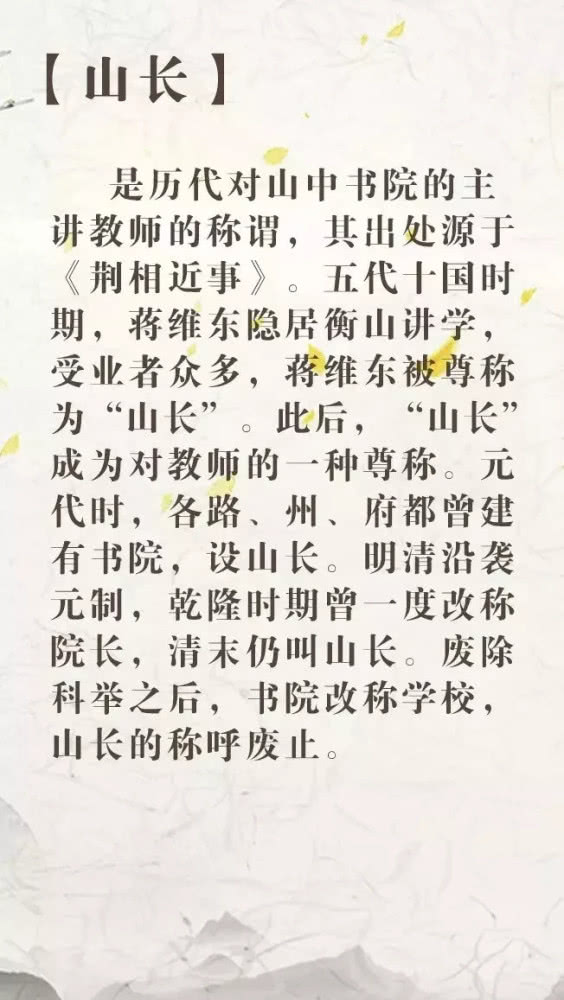 【山长】
是历代对山中书院的主
讲教师的称谓，其出处源于
《荆相近事》。五代十国时
期，蒋维东隐居衡山讲学，
受业者众多，蒋维东被尊称
为“山长”。此后，“山长”
成为对教师的一种尊称。元
代时，各路、州、府都曾建
有书院，设山长。明清沿袭
元制，乾隆时期曾一度改称
院长，清末仍叫山长。废除
科举之后，书院改称学校，
山长的称呼废止。